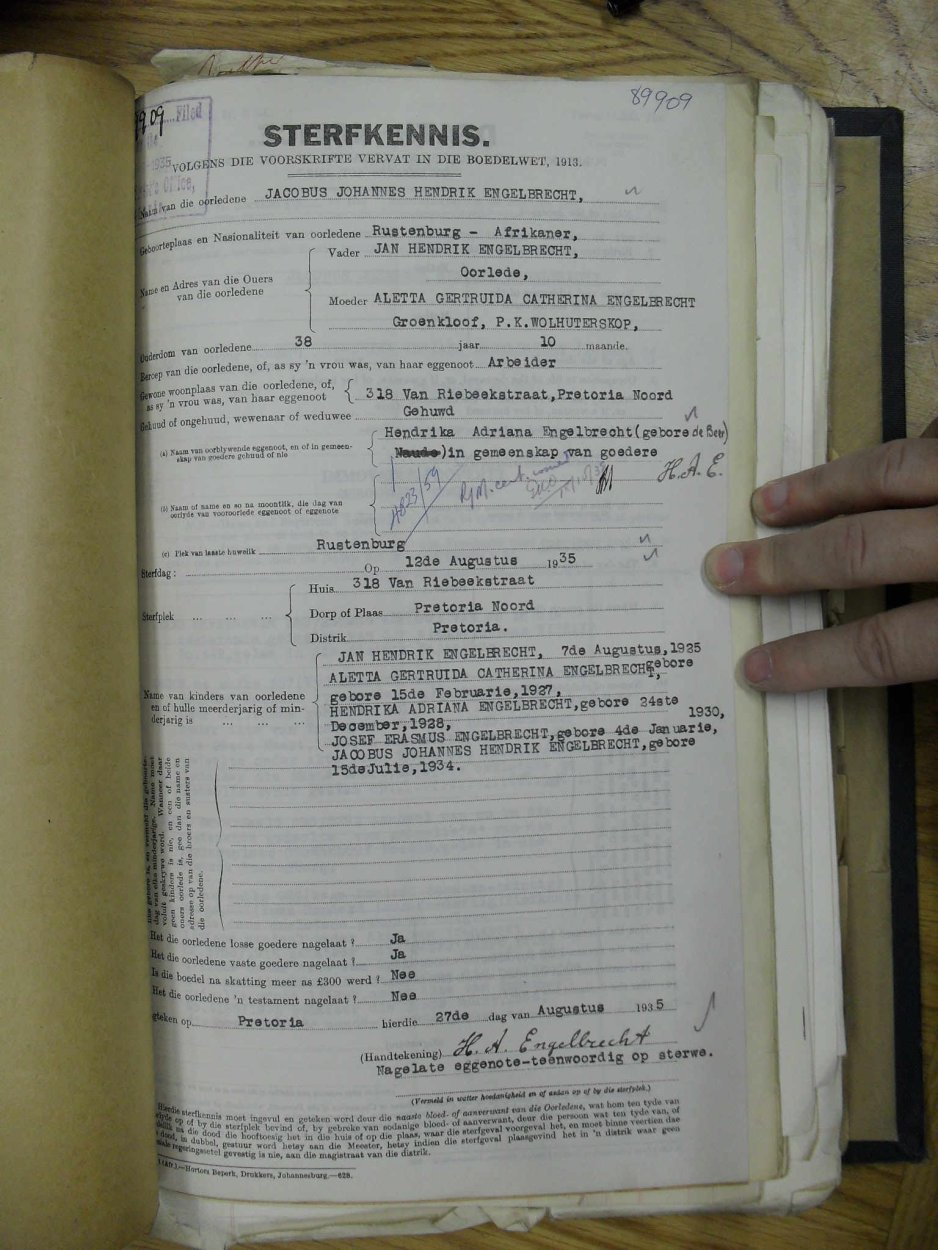 89909
9909
Filed
1935
's Office,
STERFKENNIS.
VOLGENS DIE VOORSKRIFTE VERVAT IN DIE BOEDELWET, 1913.
Naam van die oorledene JACOBUS JOHANNES HENDRIK ENGELBRECHT,
Geboorteplaas en Nasionaliteit van oorledene Rustenburg - Afrikaner,
Name en Adres van die Ouers van die oorledene
Vader JAN HENDRIK ENGELBRECHT,
Oorlede,
Moeder ALETTA GERTRUIDA CATHERINA ENGELBRECHT
Groenkloof, P.K.WOLHUTERSKOP,
Ouderdom van oorledene 38 jaar 10 maande.
Beroep van die oorledene, of, as sy 'n vrou was, van haar eggenoot Arbeider
Gewone woonplaas van die oorledene, of,
as sy 'n vrou was, van haar eggenoot
318 Van Riebeekstraat,Pretoria Noord
Gehuud of ongehuud, wewenaar of weduwee Gehuwd
(a) Naam van oorblywende eggenoot, en of in gemeen-
skap van goedere gehuud of nie
Hendrika Adriana Engelbrecht(gebore de Beer)
Naude)in gemeenskap van goedere
H.A.E.
A823/59
(b) Naam of name en so na moontlik, die dag van
oorlyde van vooroorlede eggenoot of eggenote
(c) Plek van laaste huwelik Rustenburg
Sterfdag: Op 12de Augustus 1935
Sterfplek ... ... ...
Huis 318 Van Riebeekstraat
Dorp of Plaas Pretoria Noord
Distrik Pretoria.
Name van kinders van oorledene
en of hulle meerderjarig of min-
derjarig is ... ... ...
JAN HENDRIK ENGELBRECHT, 7de Augustus,1925
gebore
ALETTA GERTRUIDA CATHERINA ENGELBRECHT,
gebore 15de Februarie,1927,
HENDRIKA ADRIANA ENGELBRECHT,gebore 24ste
December,1928,
1930,
JOSEF ERASMUS ENGELBRECHT,gebore 4de Januarie,
JACOBUS JOHANNES HENDRIK ENGELBRECHT,gebore
15deJulie,1934.
dag van elke minderjarige. Name moet
voluit geskrywe word. Wanneer daar
geen kinders is nie, en een of beide
ouers oorlede is, gee dan die name en
adresse op van die broers en susters van
die oorledene.
Het die oorledene losse goedere nagelaat ? Ja
Het die oorledene vaste goedere nagelaat ? Ja
Is die boedel na skatting meer as £300 werd ? Nee
Het die oorledene 'n testament nagelaat ? Nee
geteken op Pretoria hierdie 27de dag van Augustus 1935
(Handtekening) H. A. Engelbrecht
Nagelate eggenote-teenwoordig op sterwe.
(Vermeld in watter hoedanigheid en of aldan op of by die sterfplek.)
Hierdie sterfkennis moet ingevul en geteken word deur die naaste bloed- of aanverwant van die Oorledene, wat ten tyde van
op of by die sterfplek bevind of, by gebreke van sodanige bloed- of aanverwant, deur die persoon wat ten tyde van, of
na die dood die hooftoesig het in die huis of op die plaas, waar die sterfgeval voorgeval het, en moet binne veertien dae
dood, in dubbel, gestuur word hetsy aan die Meester, hetsy indien die sterfgeval plaasgevind het in 'n distrik waar geen
regeringsetel gevestig is nie, aan die magistraat van die distrik.
Hortors Beperk, Drukkers, Johannesburg.—628.